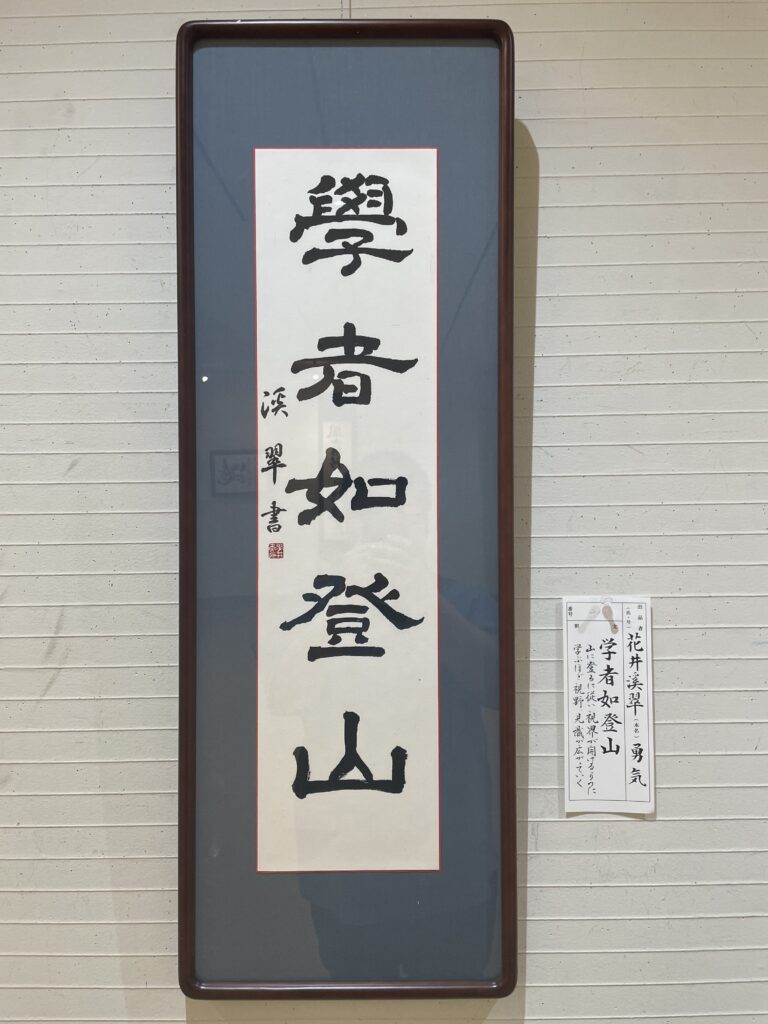 學者如登山
渓翠書
出品者
(氏・号)
花井溪翠
(本名)
勇気
学者如登山
釈文
山に登るに従い視界が開けるように
学ぶほど視野 見識が広がっていく
番号